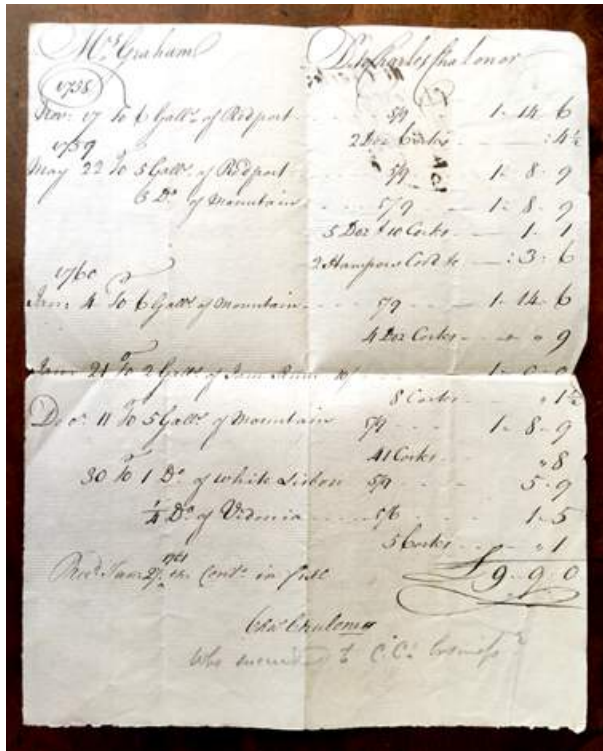 Mrs Graham Dr to Charles Chaloner
1758
Novr 17 To 6 Galls of Redport 5/9 1 - 14 - 6
2 Doz Corks : 4½
1759
May 22 To 5 Galls of Redport 5/9 1 - 8 - 9
5 Do of Mountain 5/9 1 - 8 - 9
5 Doz & 10 Corks 1 - 1
2 Hampers Cord &c : 3 - 6
1760
Janr 4 To 6 Galls of Mountain 5/9 1 - 14 - 6
4 Doz Corks " 9
Janr 21 To 2 Galls of Jam Rum 10/ 1 - 0 - 0
8 Corks " 1½
Decr 11 To 5 Galls of Mountain 5/9 1 - 8 - 9
41 Corks " 8
30 To 1 Do of White Lisbon 5/9 5 - 9
¼ Do of Vidonia 5/6 1 - 5
5 Corks " 1
£ 9 - 9 - 0
Recd Janr 27th 1761 the Conts in full
Chas Chaloner
Who succeeded to C.C's business?